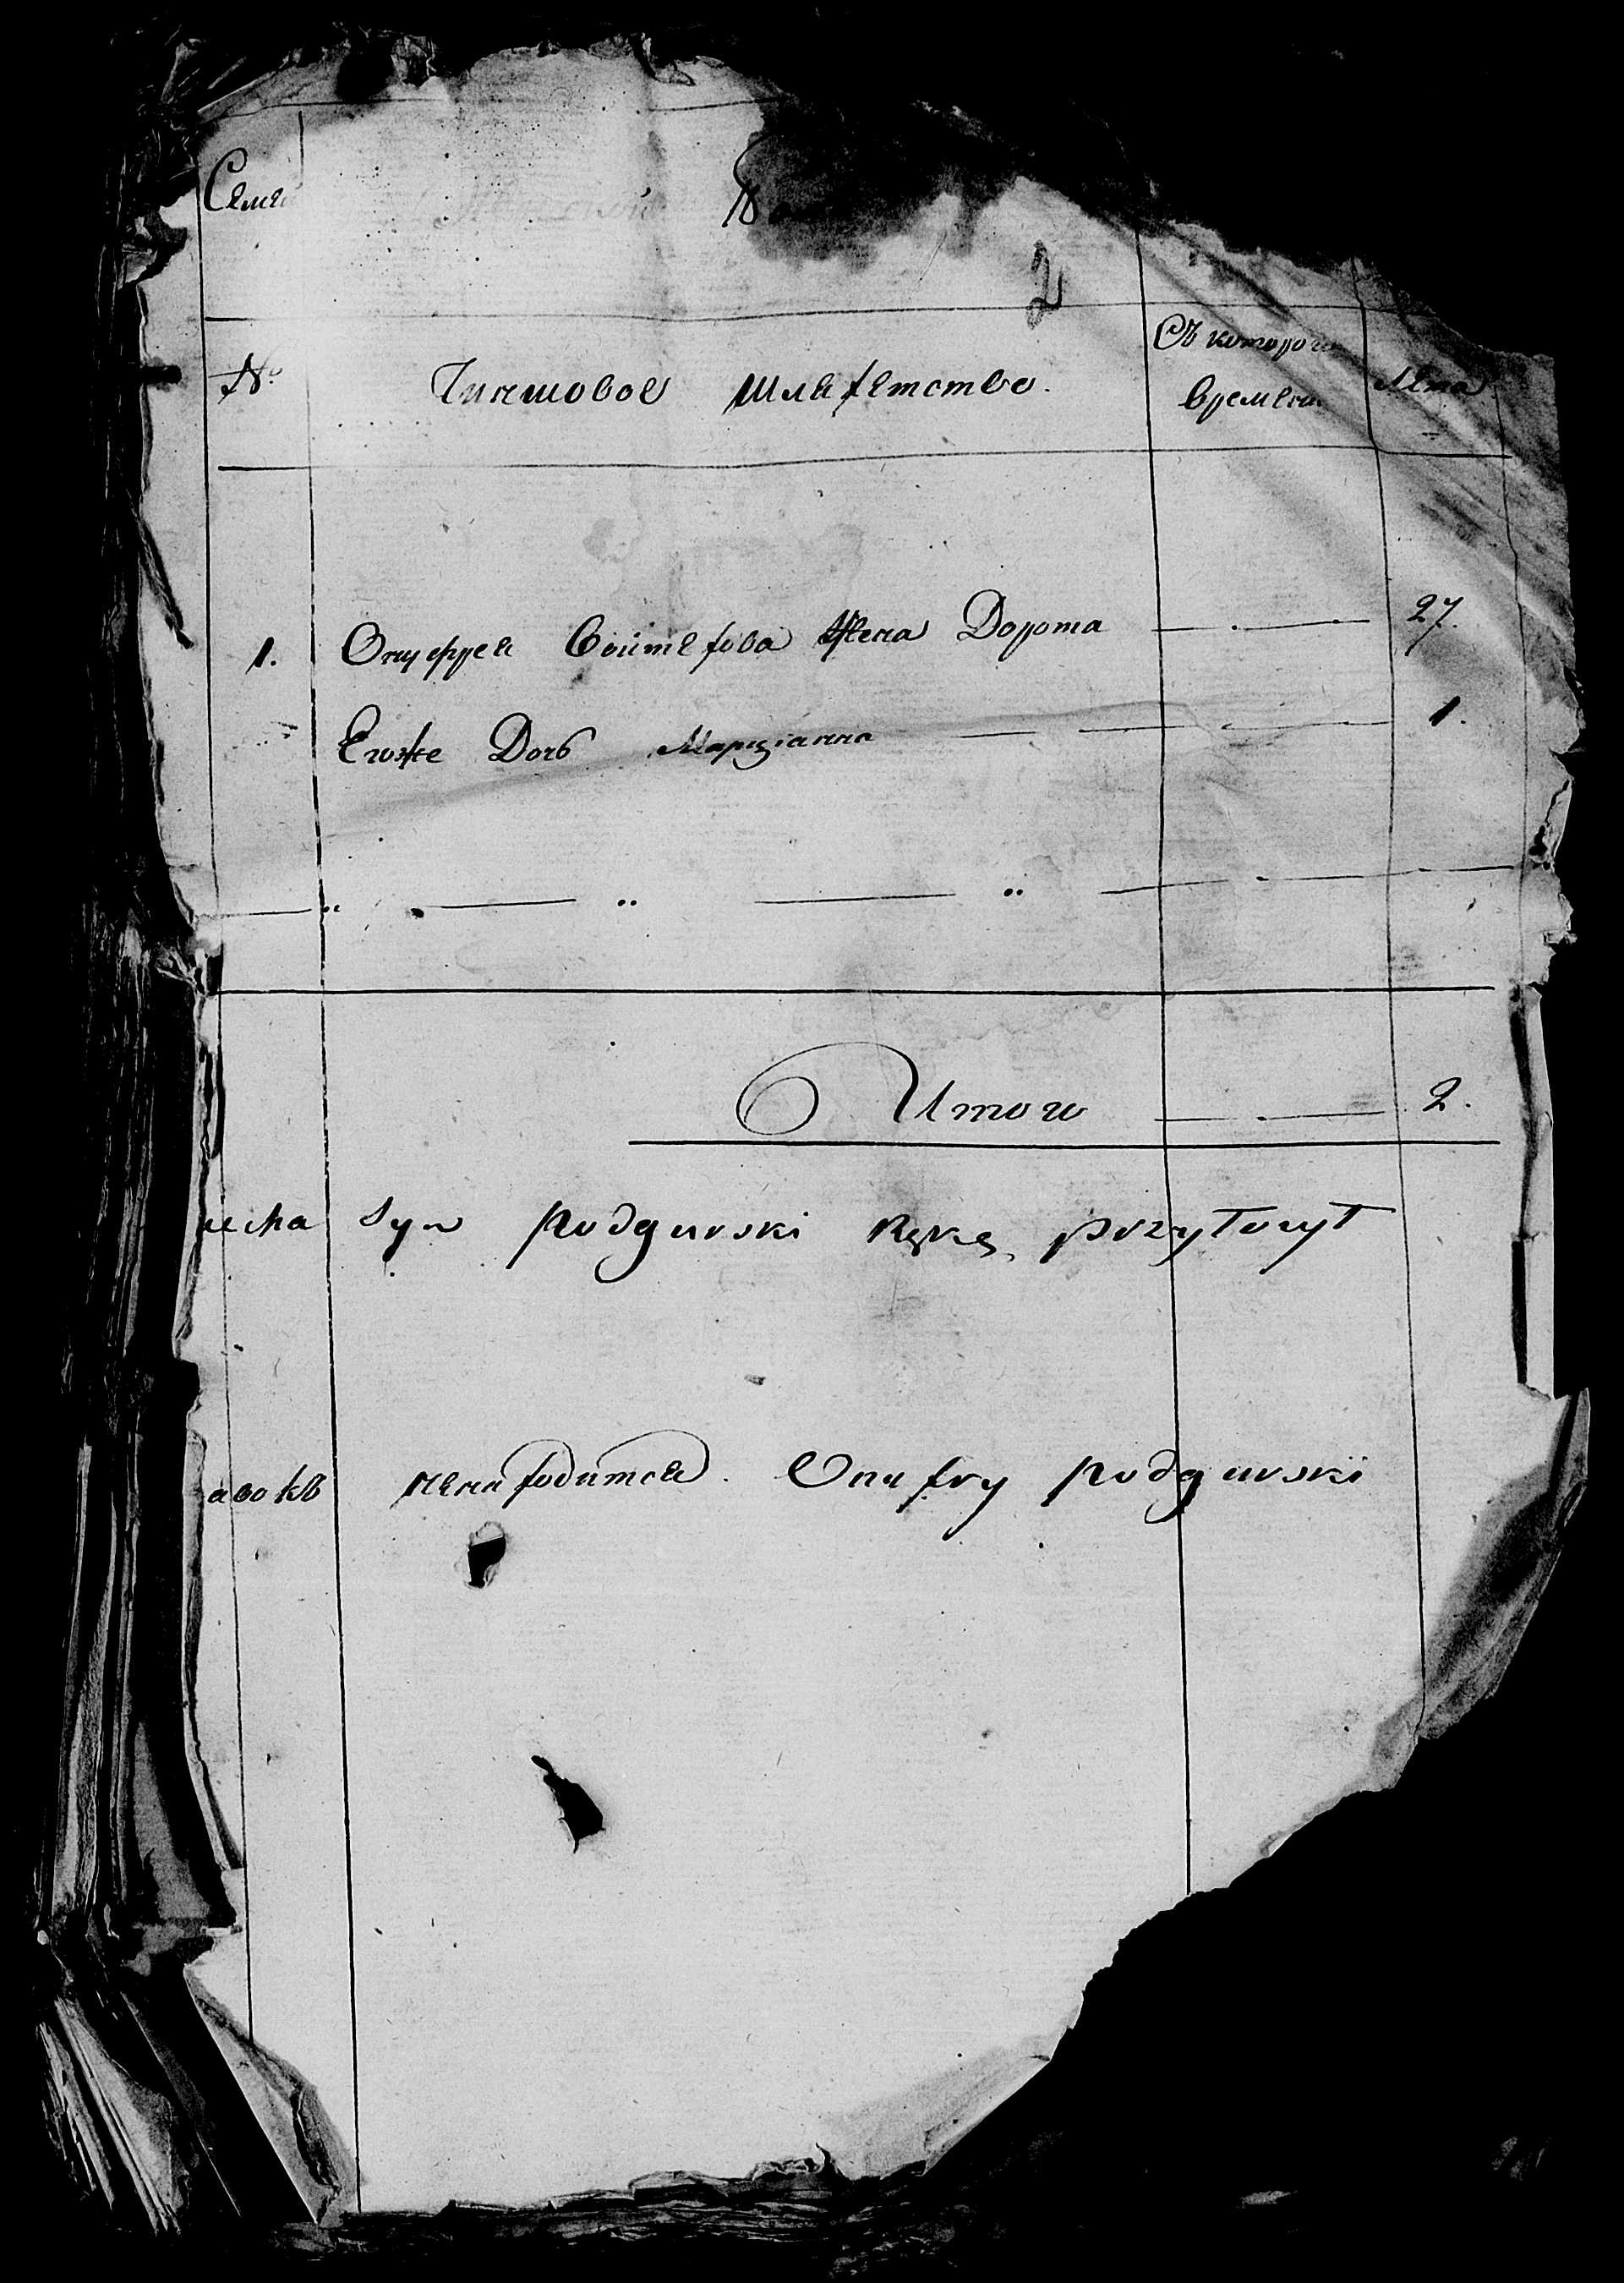 Семей
2
№ Чиншовое шляхетство. Съ котораго времени Лета
1. Онуфрея Войтехова Жена Дорота 27.
Егоже Дочь Марціанна 1.
Итого 2.
иска Syn Podgurski Rękę przytozyt
авокъ ненаходится. Onufry Podgurski